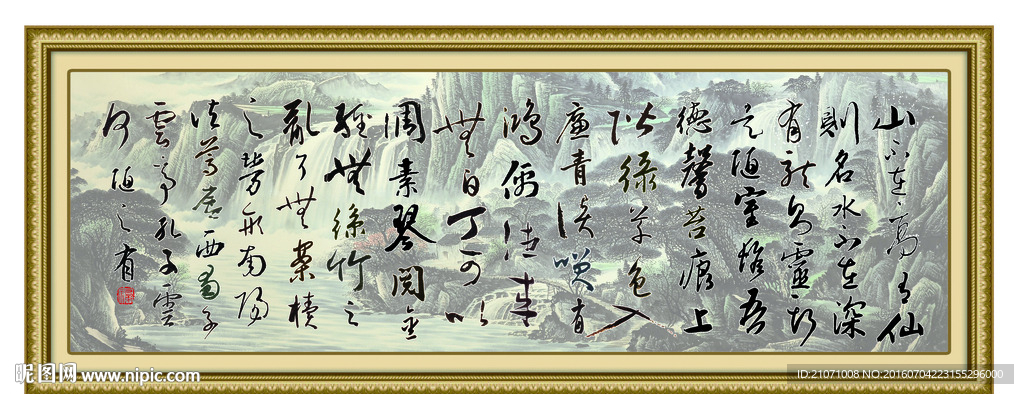 山不在高有仙
則名水不在深
有龍則靈斯
是陋室惟吾
德馨苔痕上
階綠草色入
廉青談笑有
鴻儒往來
無白丁可以
調素琴閱金
經無絲竹之
亂耳無案牘
之勞形南陽
諸葛廬西蜀子
雲亭孔子雲
何陋之有
昵图网 www.nipic.com
ID:21071008 NO:20160704223155296000